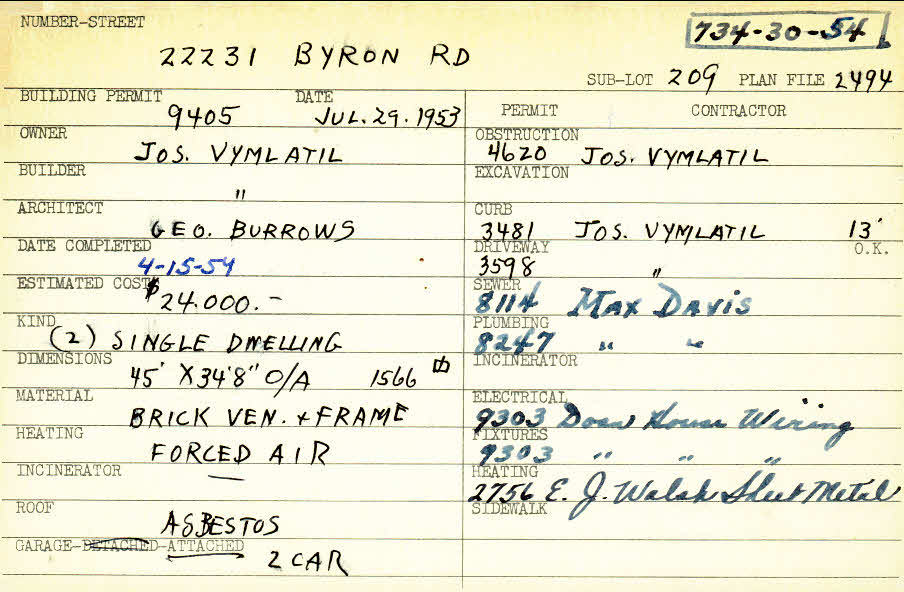 NUMBER-STREET
734-30-54
22231 BYRON RD
SUB-LOT 209 PLAN FILE 2494
BUILDING PERMIT DATE
9405 JUL. 29. 1953
OWNER
JOS. VYMLATIL
BUILDER
"
ARCHITECT
GEO. BURROWS
DATE COMPLETED
4-15-54
ESTIMATED COST
$24.000.-
KIND
(2) SINGLE DWELLING
DIMENSIONS
45' X 34'8" O/A 1566
MATERIAL
BRICK VEN. + FRAME
HEATING
FORCED AIR
INCINERATOR
—
ROOF
ASBESTOS
GARAGE-DETACHED-ATTACHED
2 CAR
PERMIT CONTRACTOR
OBSTRUCTION
4620 JOS. VYMLATIL
EXCAVATION
CURB
3481 JOS. VYMLATIL 13'
DRIVEWAY O.K.
3598 "
SEWER
8114 Max Davis
PLUMBING
8247 " "
INCINERATOR
ELECTRICAL
9303 Doan House Wiring
FIXTURES
9303 " " "
HEATING
2756 E. J. Walsh Sheet Metal
SIDEWALK